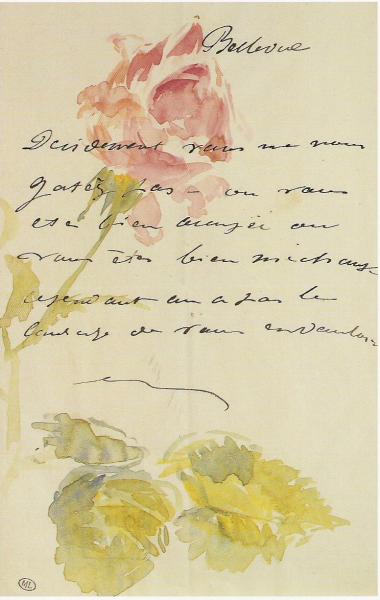 Bellevue
Décidement vous ne nous
gatez pas – ou vous
etes bien occupée ou
vous êtes bien méchante
cependant on a pas le
courage de vous en vouloir
ML